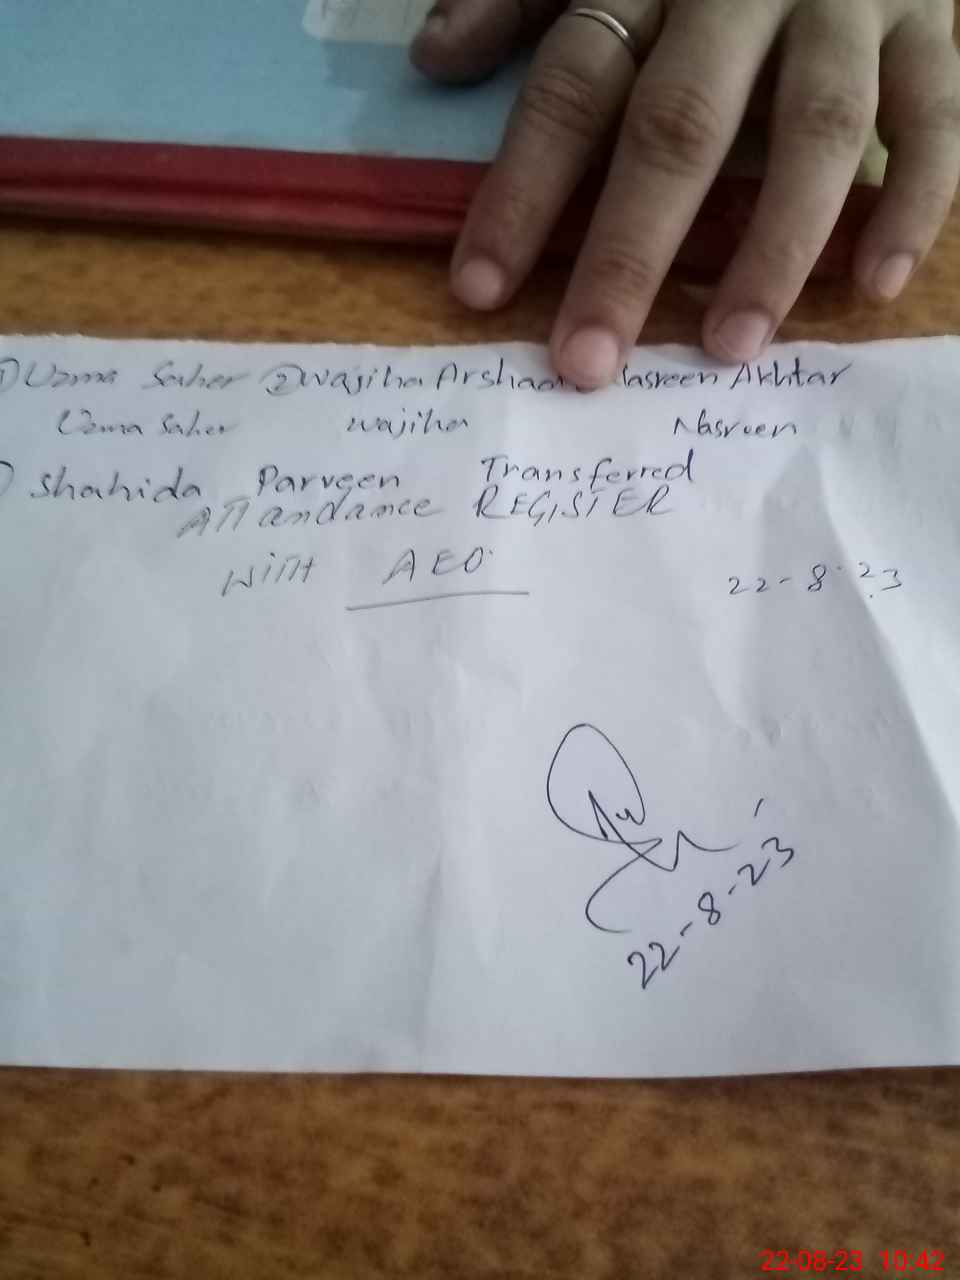 ① Uzma Saher ② Wajiha Arshad Nasreen Akhtar
Uzma Saher Wajiha Nasreen
Shahida Parveen Transferred
ATTandance REGISTER
WITH AEO
22-8-23
22-8-23
22-08-23 10:42